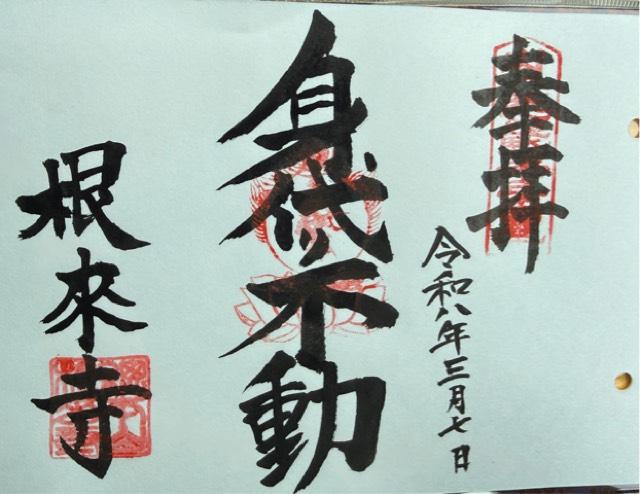 奉拝
令和八年三月七日
身代り不動
根來寺